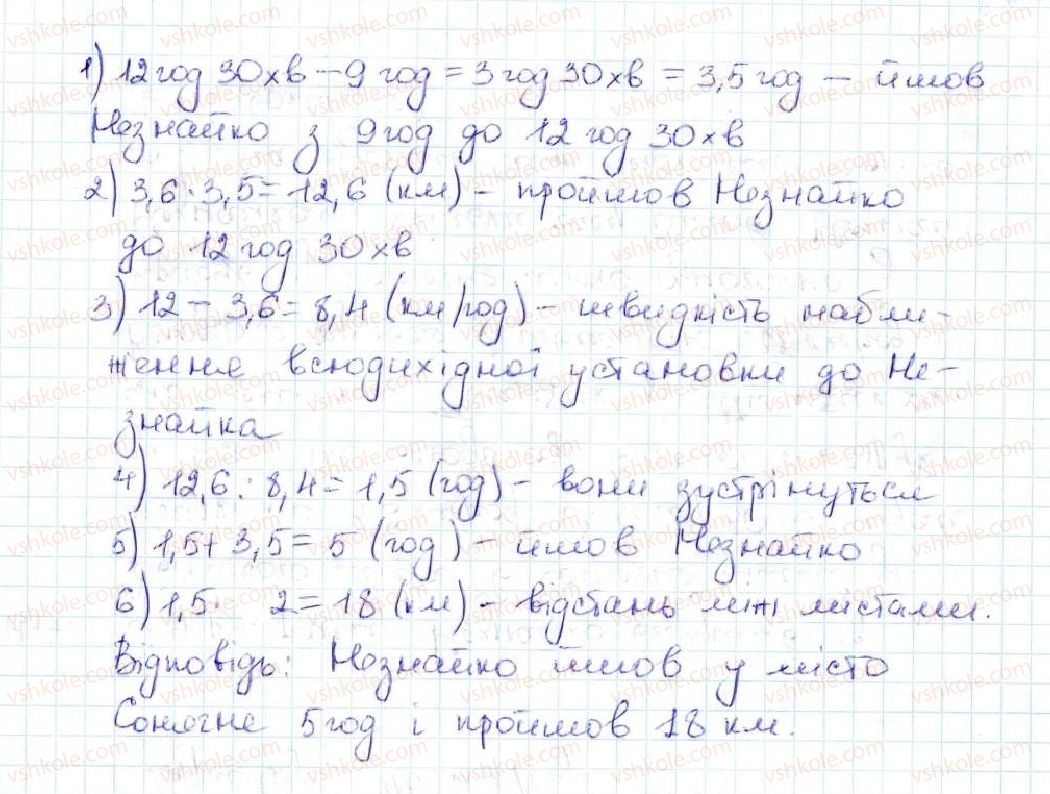 1) 12 год 30 хв – 9 год = 3 год 30 хв = 3,5 год – йшов
Незнайко з 9 год до 12 год 30 хв
2) 3,6 · 3,5 = 12,6 (км) – пройшов Незнайко
до 12 год 30 хв
3) 12 – 3,6 = 8,4 (км/год) – швидкість набли-
ження всюдихідної установки до Не-
знайка
4) 12,6 : 8,4 = 1,5 (год) – вони зустрінуться
5) 1,5 + 3,5 = 5 (год) – йшов Незнайко
6) 1,5 · 2 = 18 (км) – відстань між містами.
Відповідь: Незнайко йшов у місто
Сонячне 5 год і пройшов 18 км.
vshkole.com